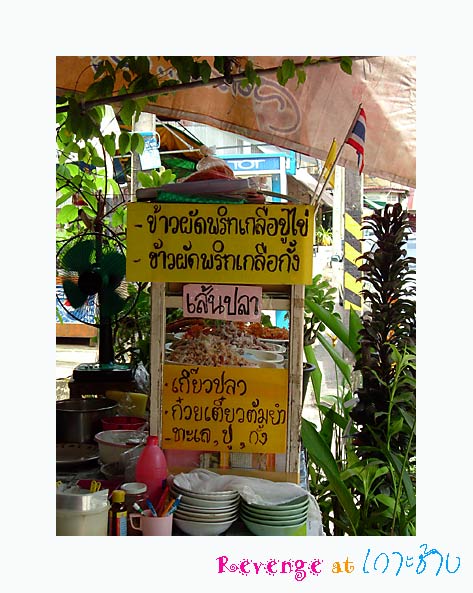 - ข้าวผัดพริกเกลือปูไข่
- ข้าวผัดพริกเกลือกั้ง
เส้นปลา
- เกี๊ยวปลา
- ก๋วยเตี๋ยวต้มยำ
ทะเล, ปู, กั้ง
Revenge at เกาะช้าง